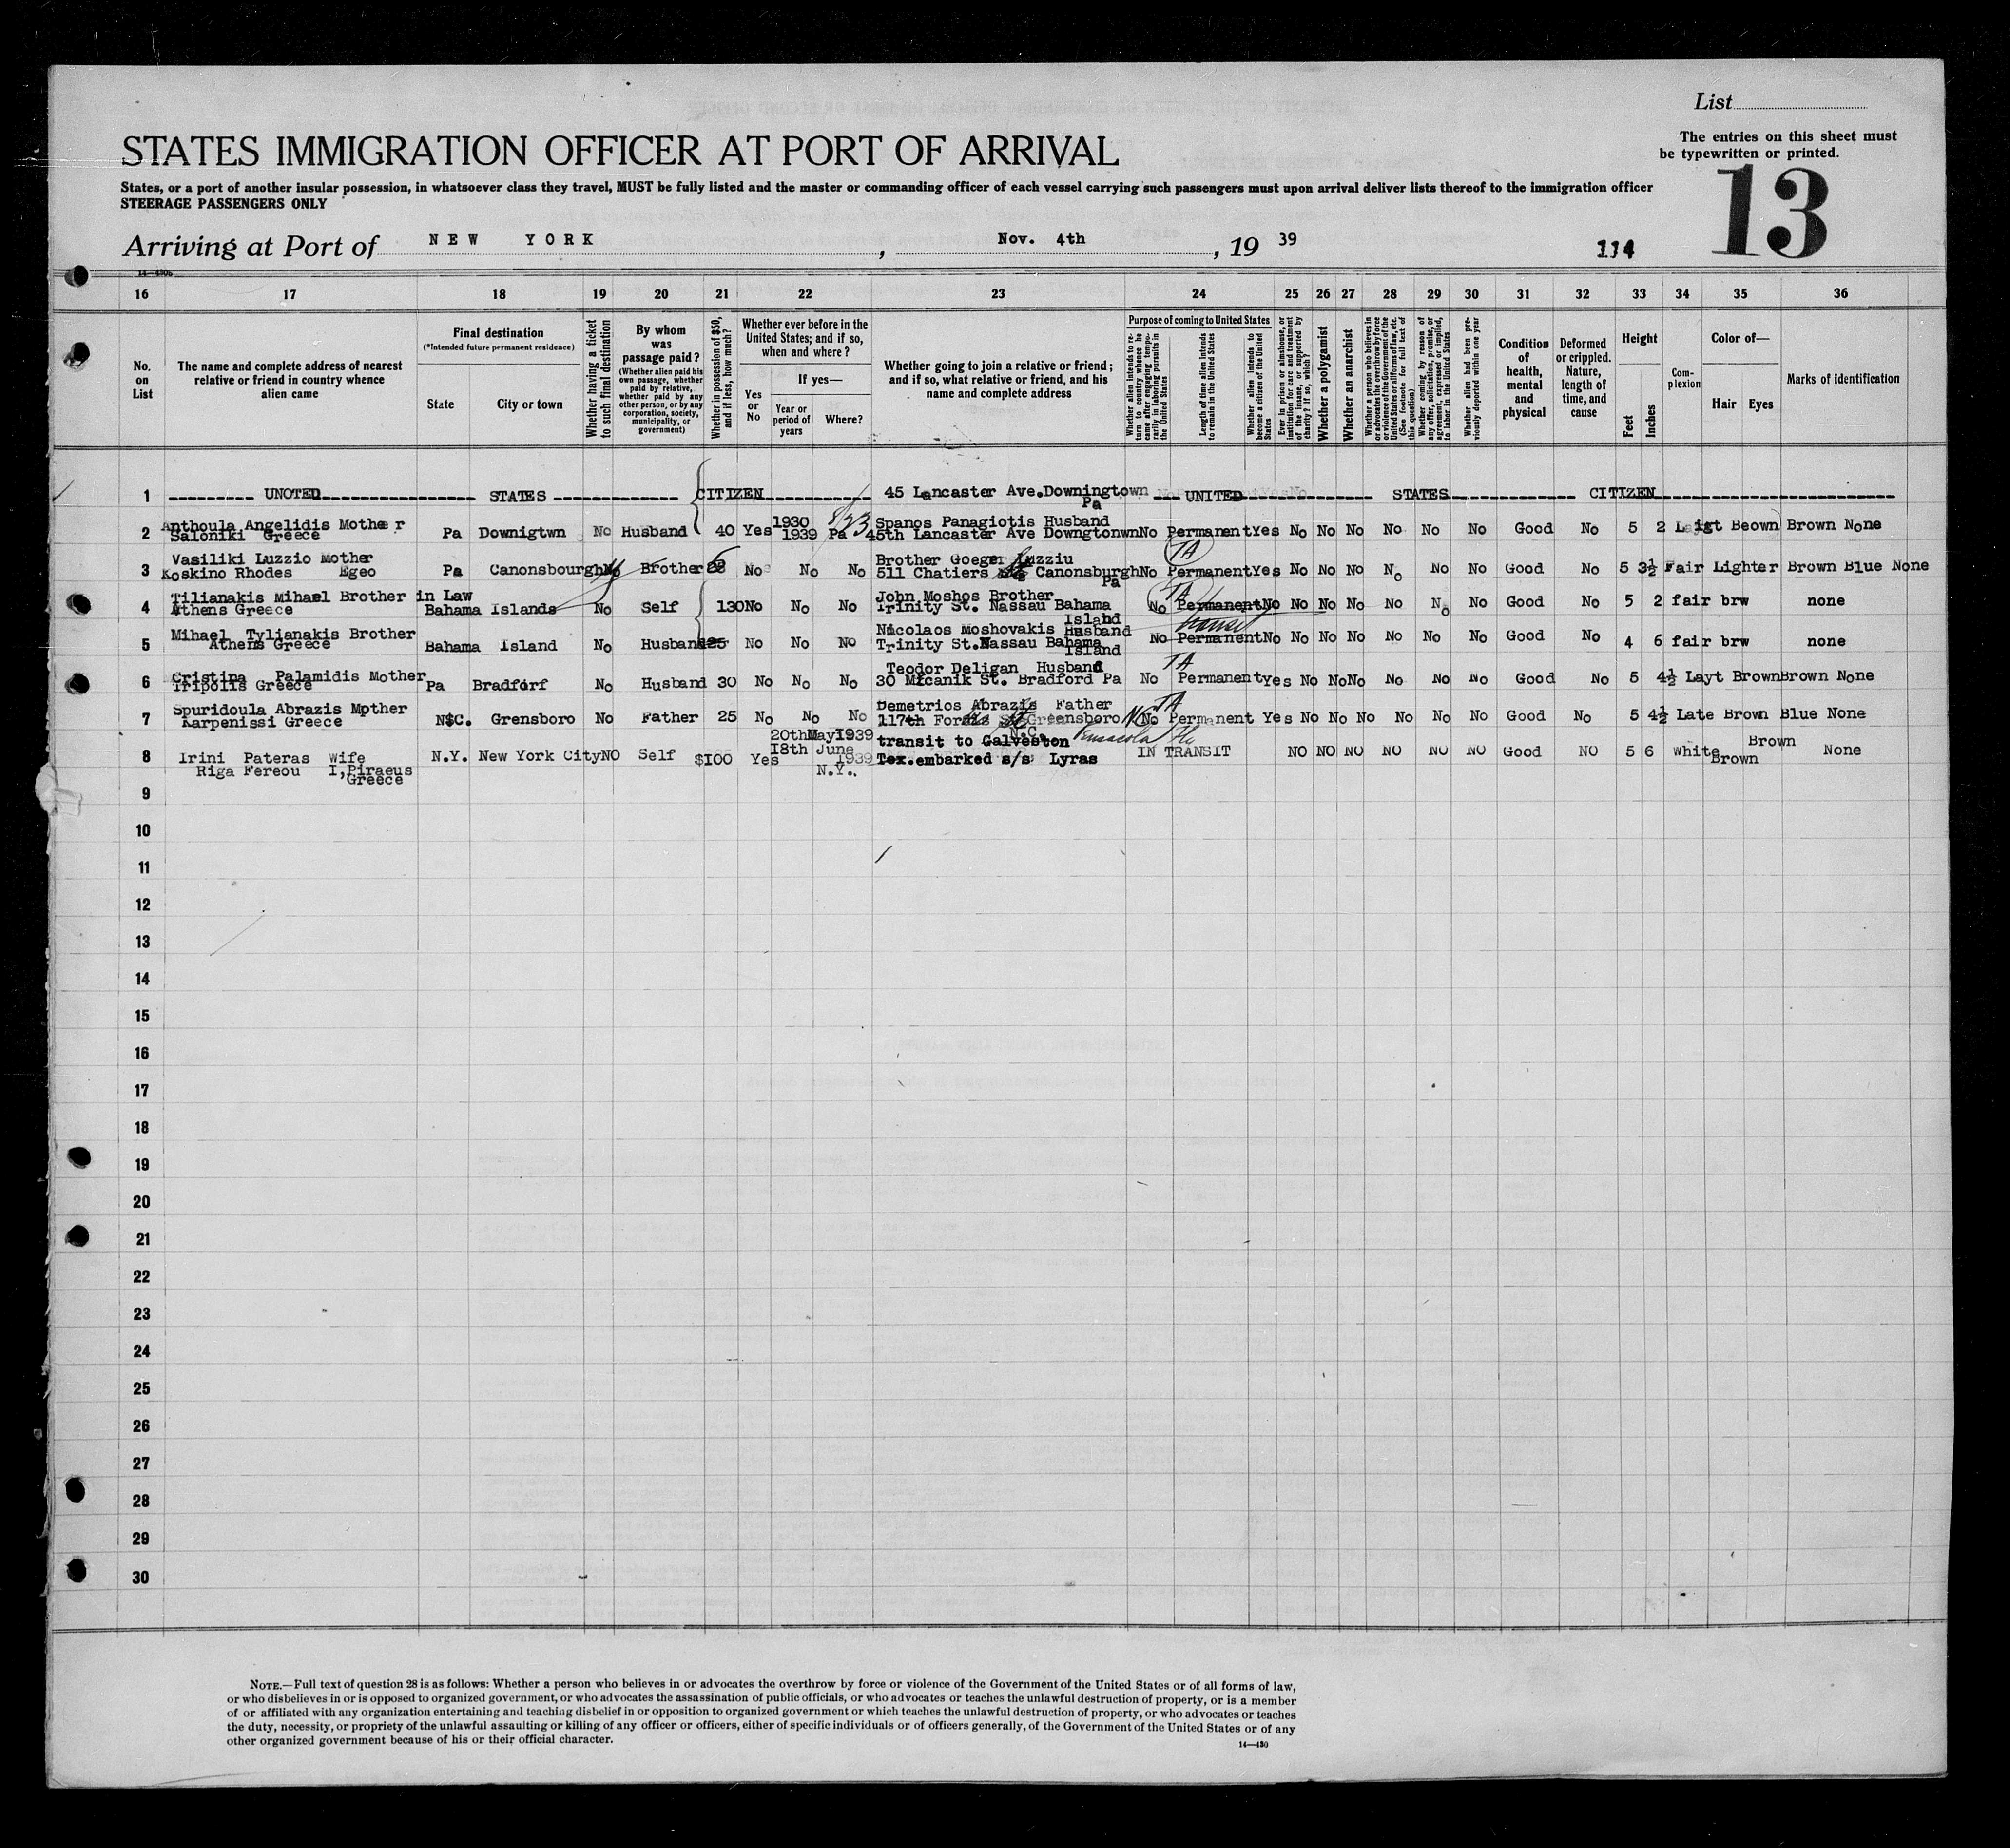 List
The entries on this sheet must
be typewritten or printed.
STATES IMMIGRATION OFFICER AT PORT OF ARRIVAL
13
States, or a port of another insular possession, in whatsoever class they travel, MUST be fully listed and the master or commanding officer of each vessel carrying such passengers must upon arrival deliver lists thereof to the immigration officer
STEERAGE PASSENGERS ONLY
Arriving at Port of NEW YORK, Nov. 4th, 19 39
114
14—430b
16 17 18 19 20 21 22 23 24 25 26 27 28 29 30 31 32 33 34 35 36
No. on List
The name and complete address of nearest relative or friend in country whence alien came
Final destination
(*Intended future permanent residence)
State
City or town
Whether having a ticket to such final destination
By whom was passage paid?
(Whether alien paid his own passage, whether paid by relative, whether paid by any other person, or by any corporation, society, municipality, or government)
Whether in possession of $50, and if less, how much?
Whether ever before in the United States; and if so, when and where?
Yes or No
If yes—
Year or period of years
Where?
Whether going to join a relative or friend; and if so, what relative or friend, and his name and complete address
Purpose of coming to United States
Whether alien intends to return to country whence he came after engaging temporarily in laboring pursuits in the United States
Length of time alien intends to remain in the United States
Whether alien intends to become a citizen of the United States
Ever in prison or almshouse, or institution for care and treatment of the insane, or supported by charity? If so, which?
Whether a polygamist
Whether an anarchist
Whether a person who believes in or advocates the overthrow by force or violence of the Government of the United States or all forms of law, etc. (See footnote for full text of this question)
Whether coming by reason of any offer, solicitation, promise, or agreement, expressed or implied, to labor in the United States
Whether alien had been previously deported within one year
Condition of health, mental and physical
Deformed or crippled. Nature, length of time, and cause
Height
Feet
Inches
Complexion
Color of—
Hair
Eyes
Marks of identification
1 UNOTED STATES CITIZEN 45 Lancaster Ave.Downingtown Pa UNITED STATES CITIZEN
2 Anthoula Angelidis Mother Saloniki Greece Pa Downigtwn No Husband 40 Yes 1930 1939 Pa 8/23 Spanos Panagiotis Husband 45th Lancaster Ave Downgtonwn No Permanent Yes No No No No No No Good No 5 2 Laigt Beown Brown None
3 Vasiliki Luzzio mother Koskino Rhodes Egeo Pa Canonsbourgh No Brother No No No Brother Goeger Luzziu 511 Chatiers Canonsburgh Pa TA No Permanent Yes No No No No No No Good No 5 3½ Fair Lighter Brown Blue None
4 Tilianakis Mihael Brother in Law Athens Greece Bahama Islands No Self 130 No No No John Moshos Brother Trinity St. Nassau Bahama Island TA No Permanent No No No No No No No Good No 5 2 fair brw none
5 Mihael Tylianakis Brother Athens Greece Bahama Island No Husband 25 No No No Nicolaos Moshovakis Husband Trinity St.Nassau Bahama Island No Permanent No No No No No No No Good No 4 6 fair brw none
6 Cristina Palamidis Mother Tripolis Greece Pa Bradforf No Husband 30 No No No Teodor Deligan Husband 30 Micanik St. Bradford Pa TA No Permanent yes No No No No No No Good No 5 4½ Layt Brown Brown None
7 Spuridoula Abrazis Mpther Karpenissi Greece N$C. Grensboro No Father 25 No No No Demetrios Abrazis Father 117th Greensboro N.C. TA No Permanent Yes No No No No No No Good No 5 4½ Late Brown Blue None
8 Irini Pateras Wife Riga Fereou I,Piraeus Greece N.Y. New York City NO Self $I00 Yes 20th May I939 I8th June 1939 N.Y. transit to Galveston Pensacola Fla Tex.embarked s/s Lyras IN TRANSIT NO NO NO NO NO NO Good NO 5 6 white Brown Brown None
9
10
11
12
13
14
15
16
17
18
19
20
21
22
23
24
25
26
27
28
29
30
NOTE.—Full text of question 28 is as follows: Whether a person who believes in or advocates the overthrow by force or violence of the Government of the United States or of all forms of law,
or who disbelieves in or is opposed to organized government, or who advocates the assassination of public officials, or who advocates or teaches the unlawful destruction of property, or is a member
of or affiliated with any organization entertaining and teaching disbelief in or opposition to organized government or which teaches the unlawful destruction of property, or who advocates or teaches
the duty, necessity, or propriety of the unlawful assaulting or killing of any officer or officers, either of specific individuals or of officers generally, of the Government of the United States or of any
other organized government because of his or their official character.
14—430